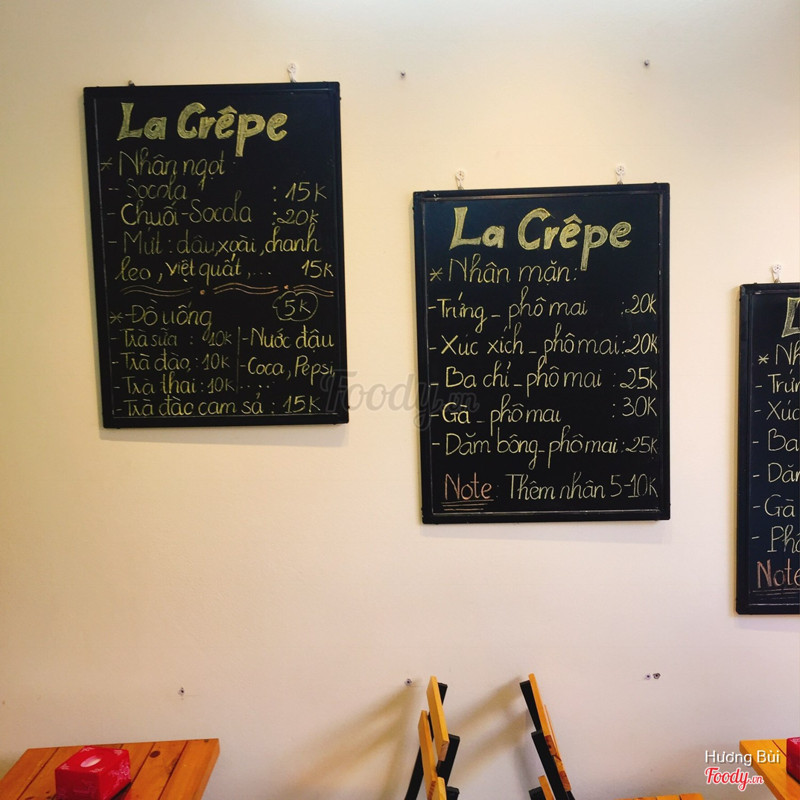 La Crêpe
* Nhân ngọt
- Socola : 15K
- Chuối-Socola : 20K
- Mứt : dâu, xoài, chanh
leo, việt quất, ... 15K
5K
* Đồ uống
- Trà sữa : 10K - Nước đậu
- Trà đào : 10K - Coca, Pepsi,
- Trà thái : 10K ....
- Trà đào cam sả : 15K
La Crêpe
* Nhân mặn :
- Trứng - phô mai : 20K
- Xúc xích - phô mai : 20K
- Ba chỉ - phô mai : 25K
- Gà - phô mai : 30K
- Dăm bông - phô mai : 25K
Note : Thêm nhân 5-10K
L
* Nh
- Trứn
- Xúc
- Ba
- Dăm
- Gà
- Phô
Note
Foody.vn
Hương Bùi
Foody.vn